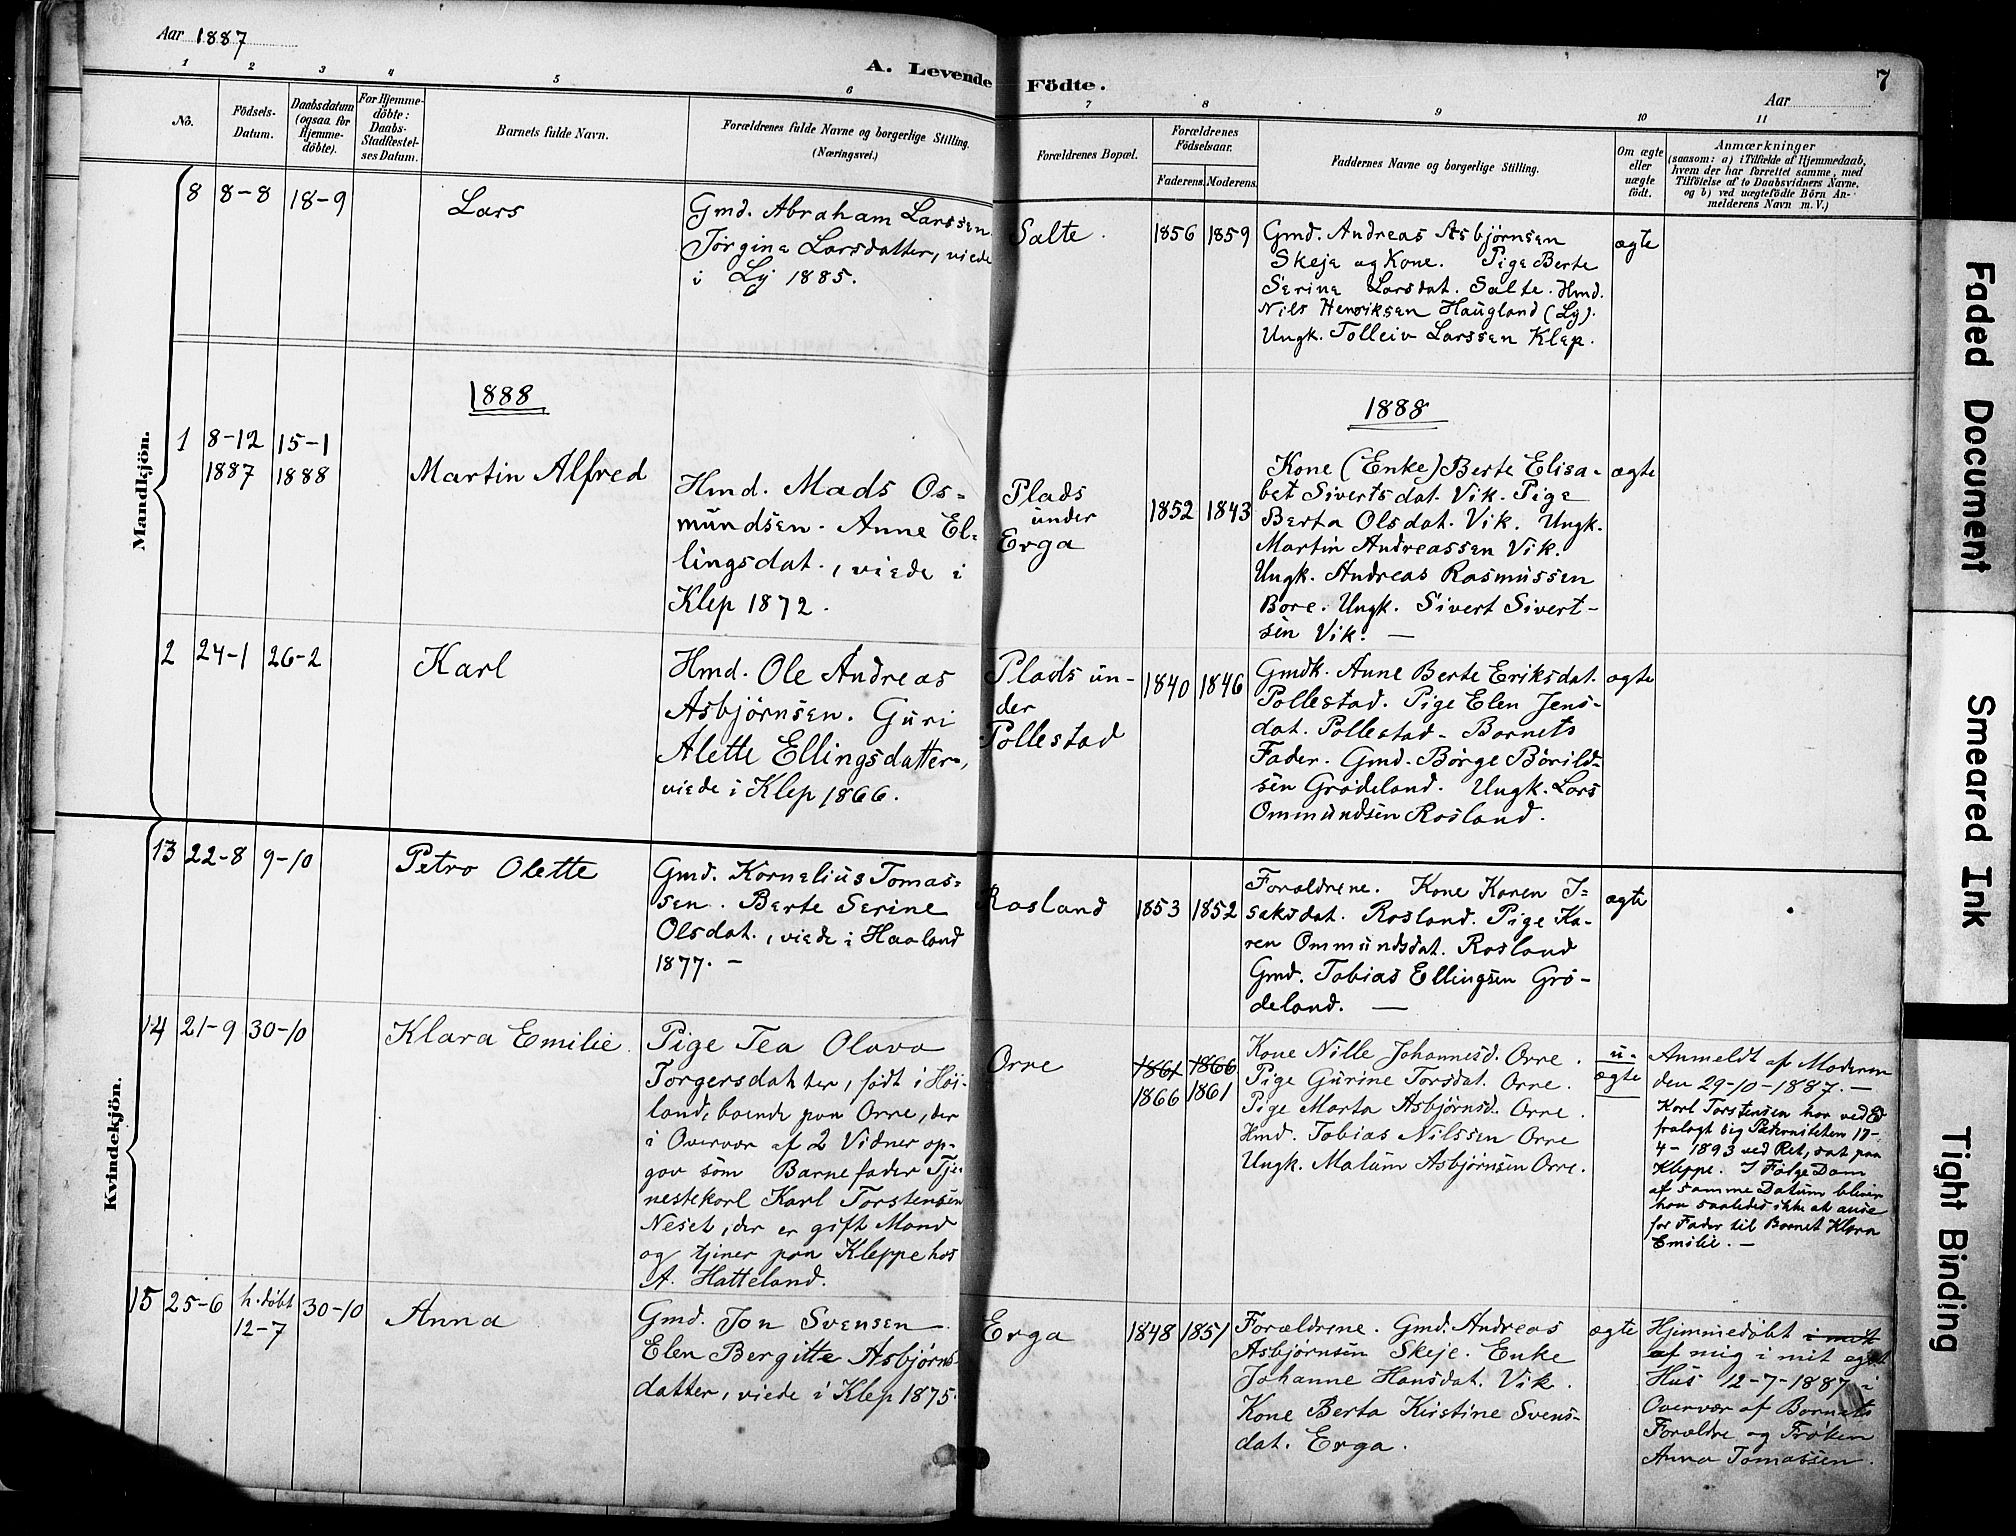 Aar 1887
A. Levende Födte.
7
Aar
1 2 3 4 5 6 7 8 9 10 11
No.
Födsels-
Datum.
Daabsdatum
(ogsaa for
Hjemme-
döbte).
For Hjemme-
döbte:
Daabs-
Stadfæstel-
ses Datum.
Barnets fulde Navn.
Forældrenes fulde Navne og borgerlige Stilling.
(Næringsvei.)
Forældrenes Bopæl.
Forældrenes
Födselsaar.
Faderens. Moderens.
Faddernes Navne og borgerlige Stilling.
Om ægte
eller
uægte
födt.
Anmærkninger
(saasom: a) i Tilfælde af Hjemmedaab,
hvem der har forrettet samme, med
Tilföielse af to Daabsvidners Navne,
og b) ved uægtefödte Börn An-
melderens Navn m. V.)
Mandkjön.
8 8-8 18-9
Lars
Gmd. Abraham Larssen
Jørgine Larsdatter, viede
i Ly 1885.
Salte.
1856 1859
Gmd. Andreas Asbjørnsen
Skeje og Kone. Pige Berte
Serine Larsdat. Salte. Hmd.
Nils Henriksen Haugland (Ly).
Ungk. Tolleiv Larssen Klep.
ægte
1888
1888
1 8-12 15-1
1887 1888
Martin Alfred
Hmd. Mads Os-
mundsen. Anne El-
lingsdat., viede i
Klep 1872.
Plads
under
Erga
1852 1843
Kone (Enke) Berte Elisa-
bet Sivertsdat. Vik. Pige
Berta Olsdat. Vik. Ungk.
Martin Andreassen Vik.
Ungk. Andreas Rasmussen
Bore. Ungk. Sivert Sivert-
sen Vik. —
ægte
2 24-1 26-2
Karl
Hmd. Ole Andreas
Asbjørnsen. Guri
Alette Ellingsdatter,
viede i Klep 1866.
Plads un-
der
Pollestad
1840 1846
Gmdk. Anne Berte Eriksdat.
Pollestad. Pige Elen Jens-
dat. Pollestad - Barnets
Fader. Gmd. Børge Børild-
sen Grødeland. Ungk. Lars
Ommundsen Rosland.
ægte
Kvindekjön.
13 22-8 9-10
Petra Olette
Gmd. Kornelius Tomas-
sen. Berte Serine
Olsdat., viede i Haaland
1877. —
Rosland
1853 1852
Forældrene. Kone Karen I-
saksdat. Rosland. Pige Ka-
ren Ommundsdat. Rosland
Gmd. Tobias Ellingsen Grø-
deland. —
ægte
14 21-9 30-10
Klara Emilie
Pige Tea Olava
Torgersdatter, født i Høi-
land, boende paa Orre, der
i Overvær af 2 Vidner op-
gav som Barnefader Tje-
nestekarl Karl Torstensen
Neset, der er gift Mand
og tjener paa Kleppe hos
A. Hatteland.
Orre
1861 1866
1866 1861
Kone Nille Johannesd. Orre.
Pige Gurine Torsdat. Orre.
Pige Marta Asbjørnsd. Orre.
Hmd. Tobias Nilssen Orre
Ungk. Malum Asbjørnsen Orre.
u-
ægte
Anmeldt af Moderen
den 29-10-1887. —
Karl Torstensen har ved Ed
fralagt sig Paterniteten 17-
4-1893 ved Ret, sat paa
Kleppe. I Følge Dom
af samme Datum bliver
han saaledes ikke at anse
for Fader til Barnet Klara
Emilie. —
15 25-6 h.døbt 30-10
12-7
Anna
Gmd. Jon Svensen
Elen Bergitte Asbjørns-
datter, viede i Klep 1875.
Erga
1848 1851
Forældrene. Gmd. Andreas
Asbjørnsen Skeje. Enke
Johanne Hansdat. Vik.
Kone Berta Kirstine Svens-
dat. Erga.
ægte
Hjemmedøbt i mit
af mig i mit eget
Hus 12-7-1887 i
Overvær af Barnets
Forældre og Frøken
Anna Tomassen.
Faded Document
Smeared Ink
Tight Binding